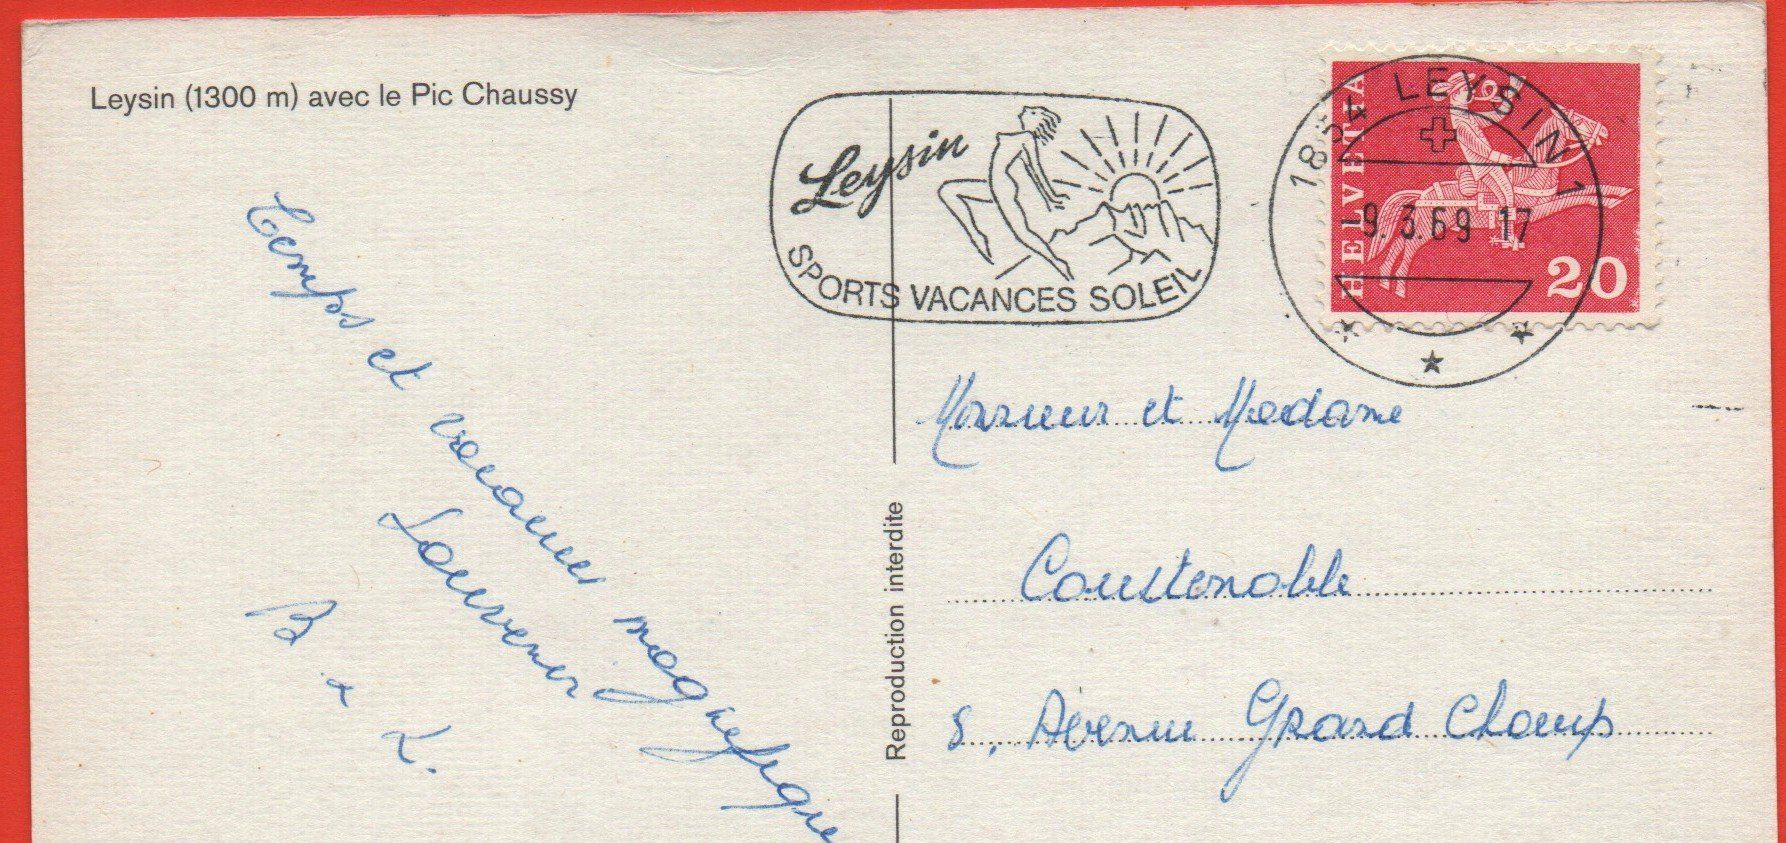 Leysin (1300 m) avec le Pic Chaussy
Leysin
SPORTS VACANCES SOLEIL
1854 LEYSIN 1
-9.3.69 17
HELVETIA
20
Temps et vacances magnifiques
Souvenir
B + L.
Reproduction interdite
Monsieur et Madame
Coustenoble
8, Avenue Grand Champ